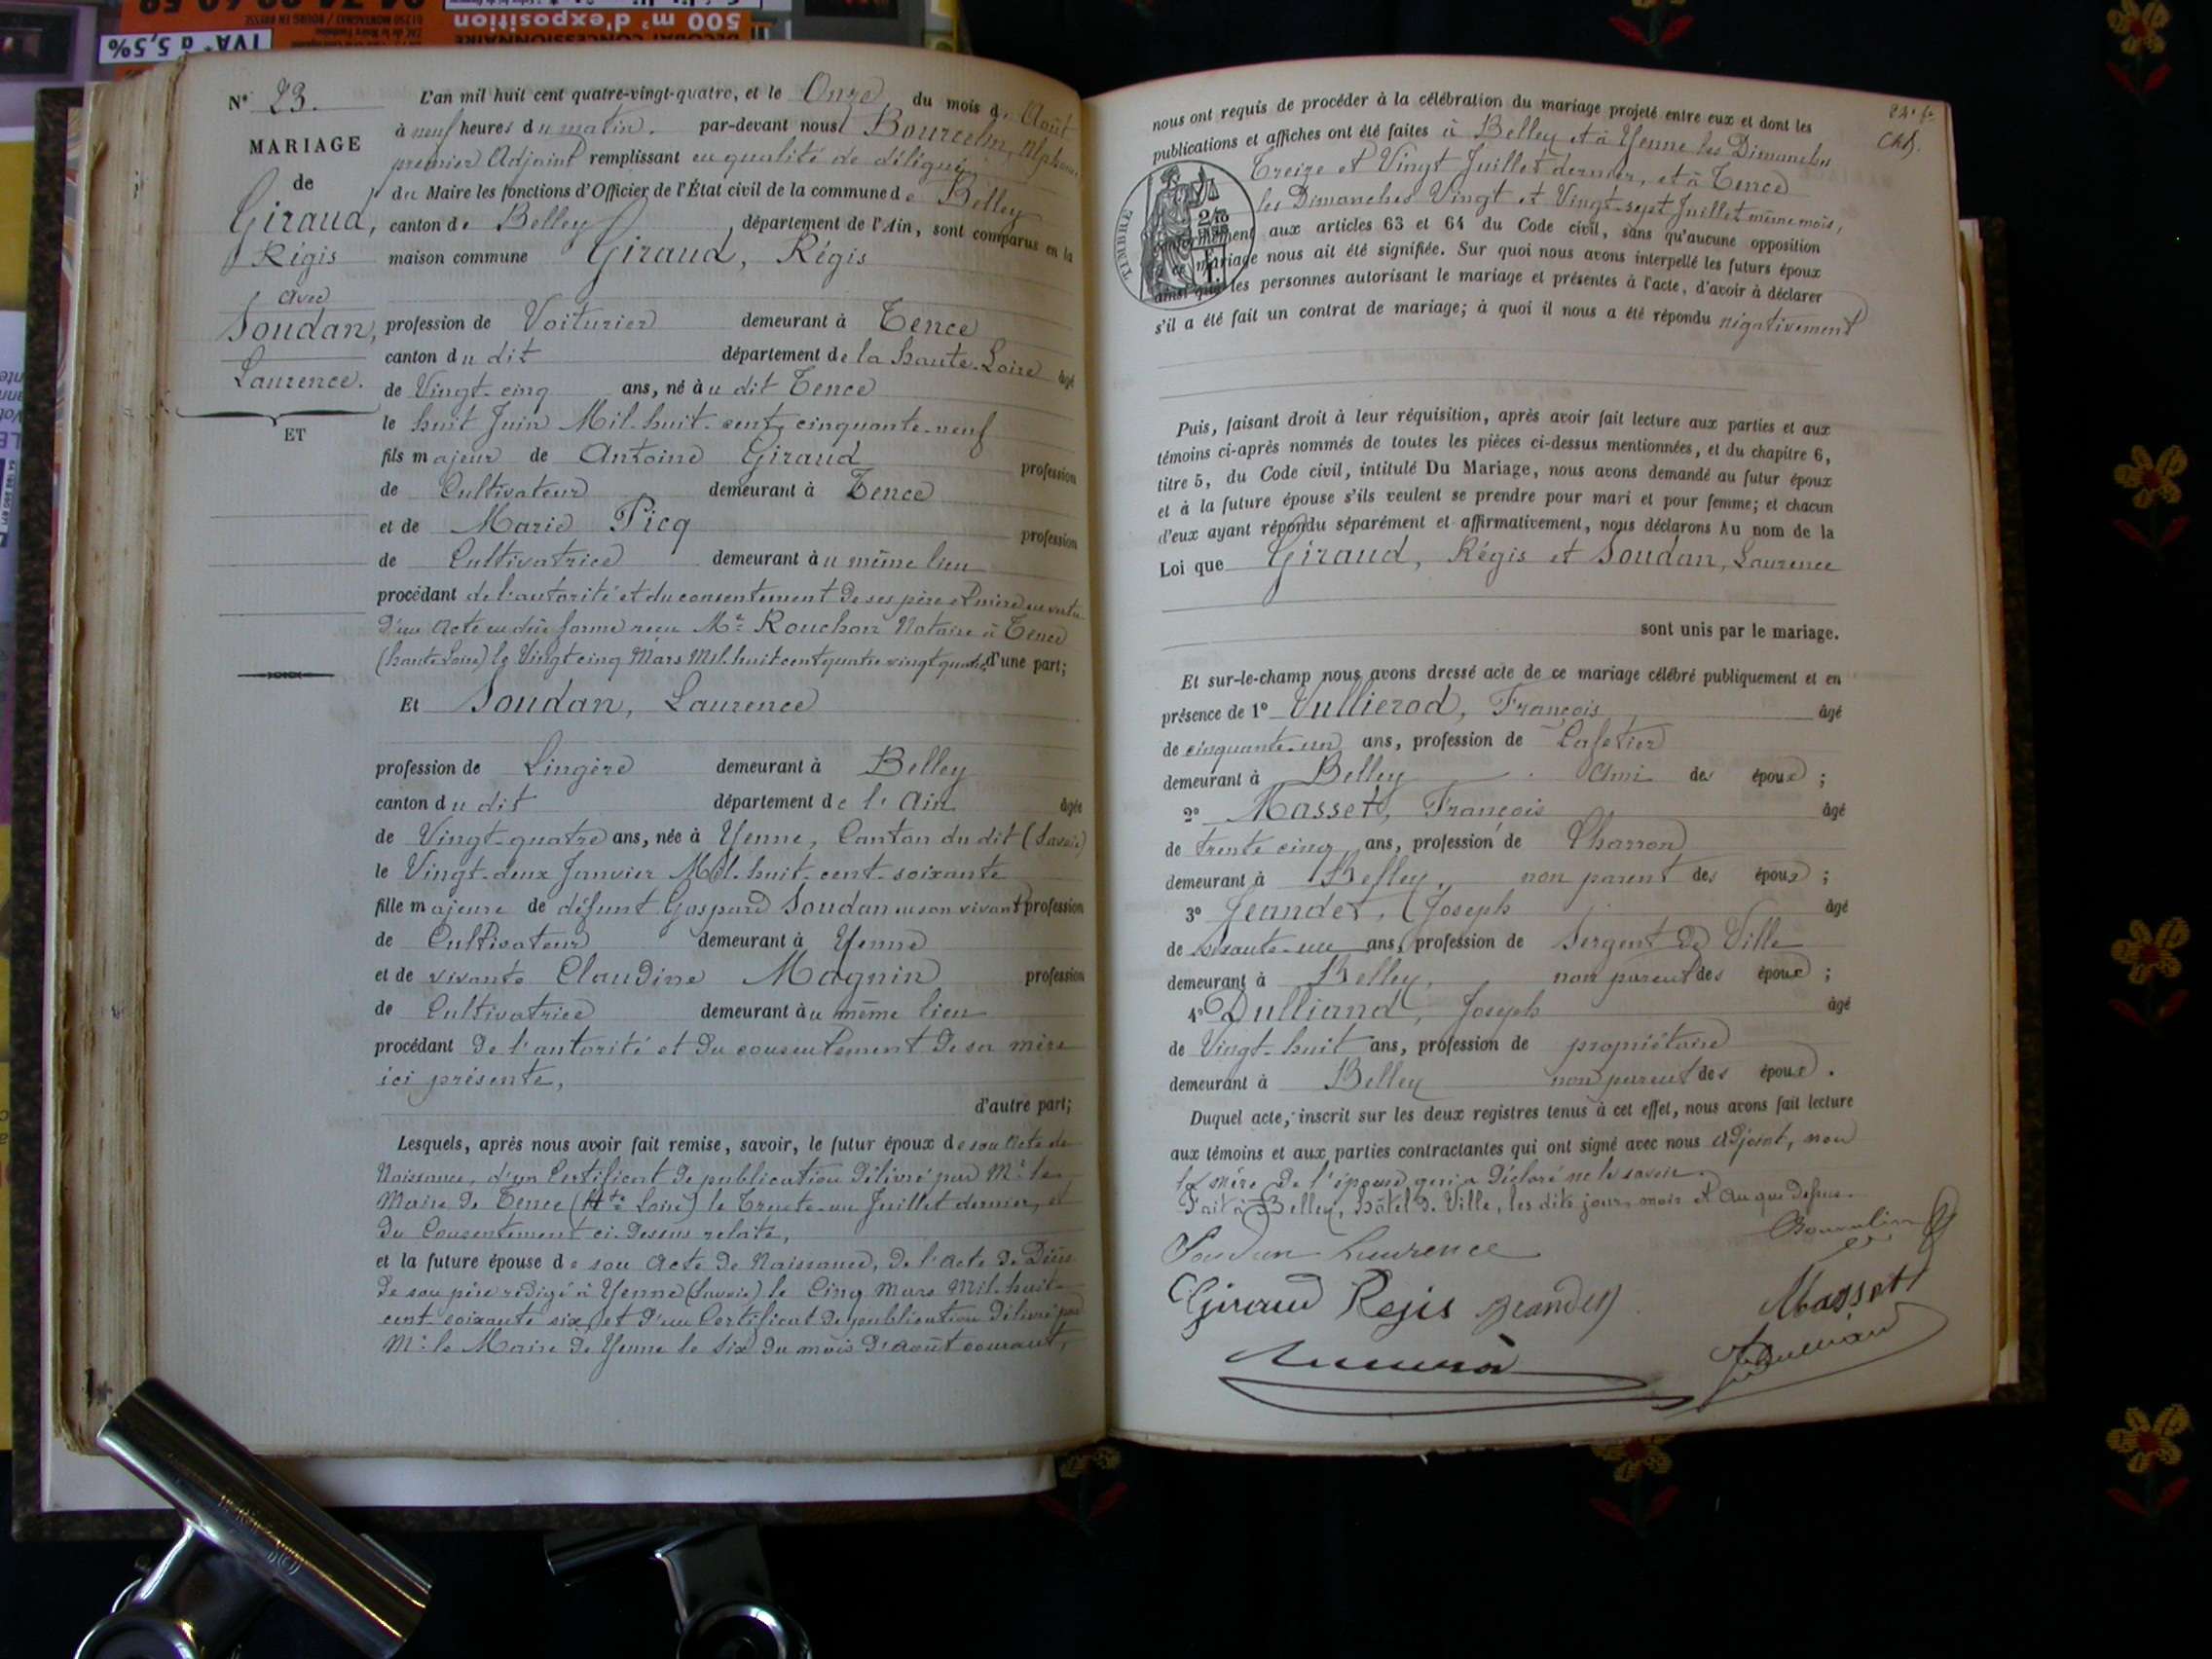 TVA à 5,5%
500 m² d'exposition
N° 23.
MARIAGE
de
Giraud,
Régis
avec
Soudan,
Laurence.
ET
L'an mil huit cent quatre-vingt-quatre, et le Onze du mois d' Août
à neuf heures du matin. par-devant nous Bourcelin, Alphonse
premier Adjoint remplissant en qualité de délégué
du Maire les fonctions d'Officier de l'État civil de la commune de Belley
canton de Belley, département de l'Ain, sont comparus en la
maison commune Giraud, Régis
profession de Voiturier demeurant à Tence
canton du dit département de la haute-Loire âgé
de Vingt-cinq ans, né à u dit Tence
le huit Juin Mil-huit-cent-cinquante-neuf
fils majeur de Antoine Giraud profession
de Cultivateur demeurant à Tence
et de Marie Picq profession
de Cultivatrice demeurant à u même lieu
procédant de l'autorité et du consentement de ses père et mère en vertu
d'un acte en due forme reçu Me Rouchon Notaire à Tence
(haute Loire) le Vingt cinq Mars Mil huit cent quatre vingt quatre, d'une part;
Et Soudan, Laurence
profession de Lingère demeurant à Belley
canton du dit département de l'Ain âgée
de Vingt-quatre ans, née à Yenne, Canton du dit (Savoie)
le Vingt-deux Janvier Mil-huit-cent-soixante
fille majeure de défunt Gaspard Soudan en son vivant profession
de Cultivateur demeurant à Yenne
et de vivante Claudine Magnin profession
de Cultivatrice demeurant à u même lieu
procédant de l'autorité et du consentement de sa mère
ici présente,
d'autre part;
Lesquels, après nous avoir fait remise, savoir, le futur époux de son Acte de
Naissance, d'un Certificat de publication délivré par Mr le
Maire de Tence (Hte Loire) le Trente-un Juillet dernier, et
du Consentement ci-dessus relaté,
et la future épouse de son Acte de Naissance, de l'acte de Décès
de son père rédigé à Yenne (Savoie) le Cinq Mars Mil-huit-
cent soixante six, et d'un Certificat de publication délivré par
Mr le Maire de Yenne le Six du mois d'août courant,
Ch.
nous ont requis de procéder à la célébration du mariage projeté entre eux et dont les
publications et affiches ont été faites à Belley et à Yenne les Dimanches
Treize et Vingt Juillet dernier, et à Tence
les Dimanches Vingt et Vingt-sept Juillet même mois,
TIMBRE
conformément aux articles 63 et 64 du Code civil, sans qu'aucune opposition
à ce mariage nous ait été signifiée. Sur quoi nous avons interpellé les futurs époux
ainsi que les personnes autorisant le mariage et présentes à l'acte, d'avoir à déclarer
s'il a été fait un contrat de mariage; à quoi il nous a été répondu négativement
Puis, faisant droit à leur réquisition, après avoir fait lecture aux parties et aux
témoins ci-après nommés de toutes les pièces ci-dessus mentionnées, et du chapitre 6,
titre 5, du Code civil, intitulé Du Mariage, nous avons demandé au futur époux
et à la future épouse s'ils veulent se prendre pour mari et pour femme; et chacun
d'eux ayant répondu séparément et affirmativement, nous déclarons Au nom de la
Loi que Giraud, Régis et Soudan, Laurence
sont unis par le mariage.
Et sur-le-champ nous avons dressé acte de ce mariage célébré publiquement et en
présence de 1° Vullierod, François âgé
de cinquante-un ans, profession de Cafetier
demeurant à Belley Ami des époux ;
2° Masset, François âgé
de trente cinq ans, profession de Charron
demeurant à Belley, non parent des époux ;
3° Jeandet, Joseph âgé
de soixante-un ans, profession de Sergent de Ville
demeurant à Belley, non parent des époux ;
4° Dulliand, Joseph âgé
de Vingt-huit ans, profession de propriétaire
demeurant à Belley non parent des époux .
Duquel acte, inscrit sur les deux registres tenus à cet effet, nous avons fait lecture
aux témoins et aux parties contractantes qui ont signé avec nous Adjoint, non
la mère de l'épouse qui a déclaré ne le savoir.
Fait à Belley, hôtel de Ville, les dits jour, mois et an que dessus.
Bourcelin
Soudan Laurence
Giraud Regis Jeandet
Masset